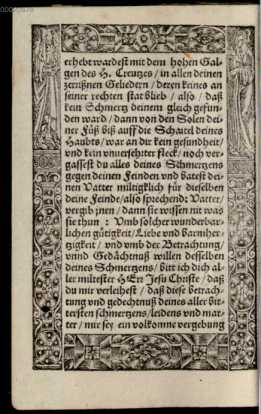 erhebt wardest mit dem hohen Gal-
gen des H. Creutzes / in allen deinen
zerrißnen Geliedern / deren keines an
seiner rechten stat blieb / also / daß
kein Schmertz deinem gleich gefun-
den ward / dann von den Solen dei-
ner Füß biß auff die Schaitel deines
Haubts / war an dir kein gesundheit /
und kein unversehrter fleck / noch ver-
gassest du alles deines Schmertzens
gegen deinen Feinden und batest dei-
nen Vatter miltigklich für dieselben
deine Feinde / also sprechend: Vatter /
vergib jnen / dann sie wissen nit was
sie thun : Umb solcher wunderbar-
lichen gütigkeit / Liebe und barmher-
tzigkeit / und umb der Betrachtung /
unnd Gedächtnuß willen desselben
deines Schmertzens / bitt ich dich al-
ler miltester HErr Jesu Christe / daß
du mir verleihest / daß diese betrach-
tung und gedechtnuß deines aller bit-
tersten schmertzens / leidens und mar-
ter / mir sey ein volkomne vergebung